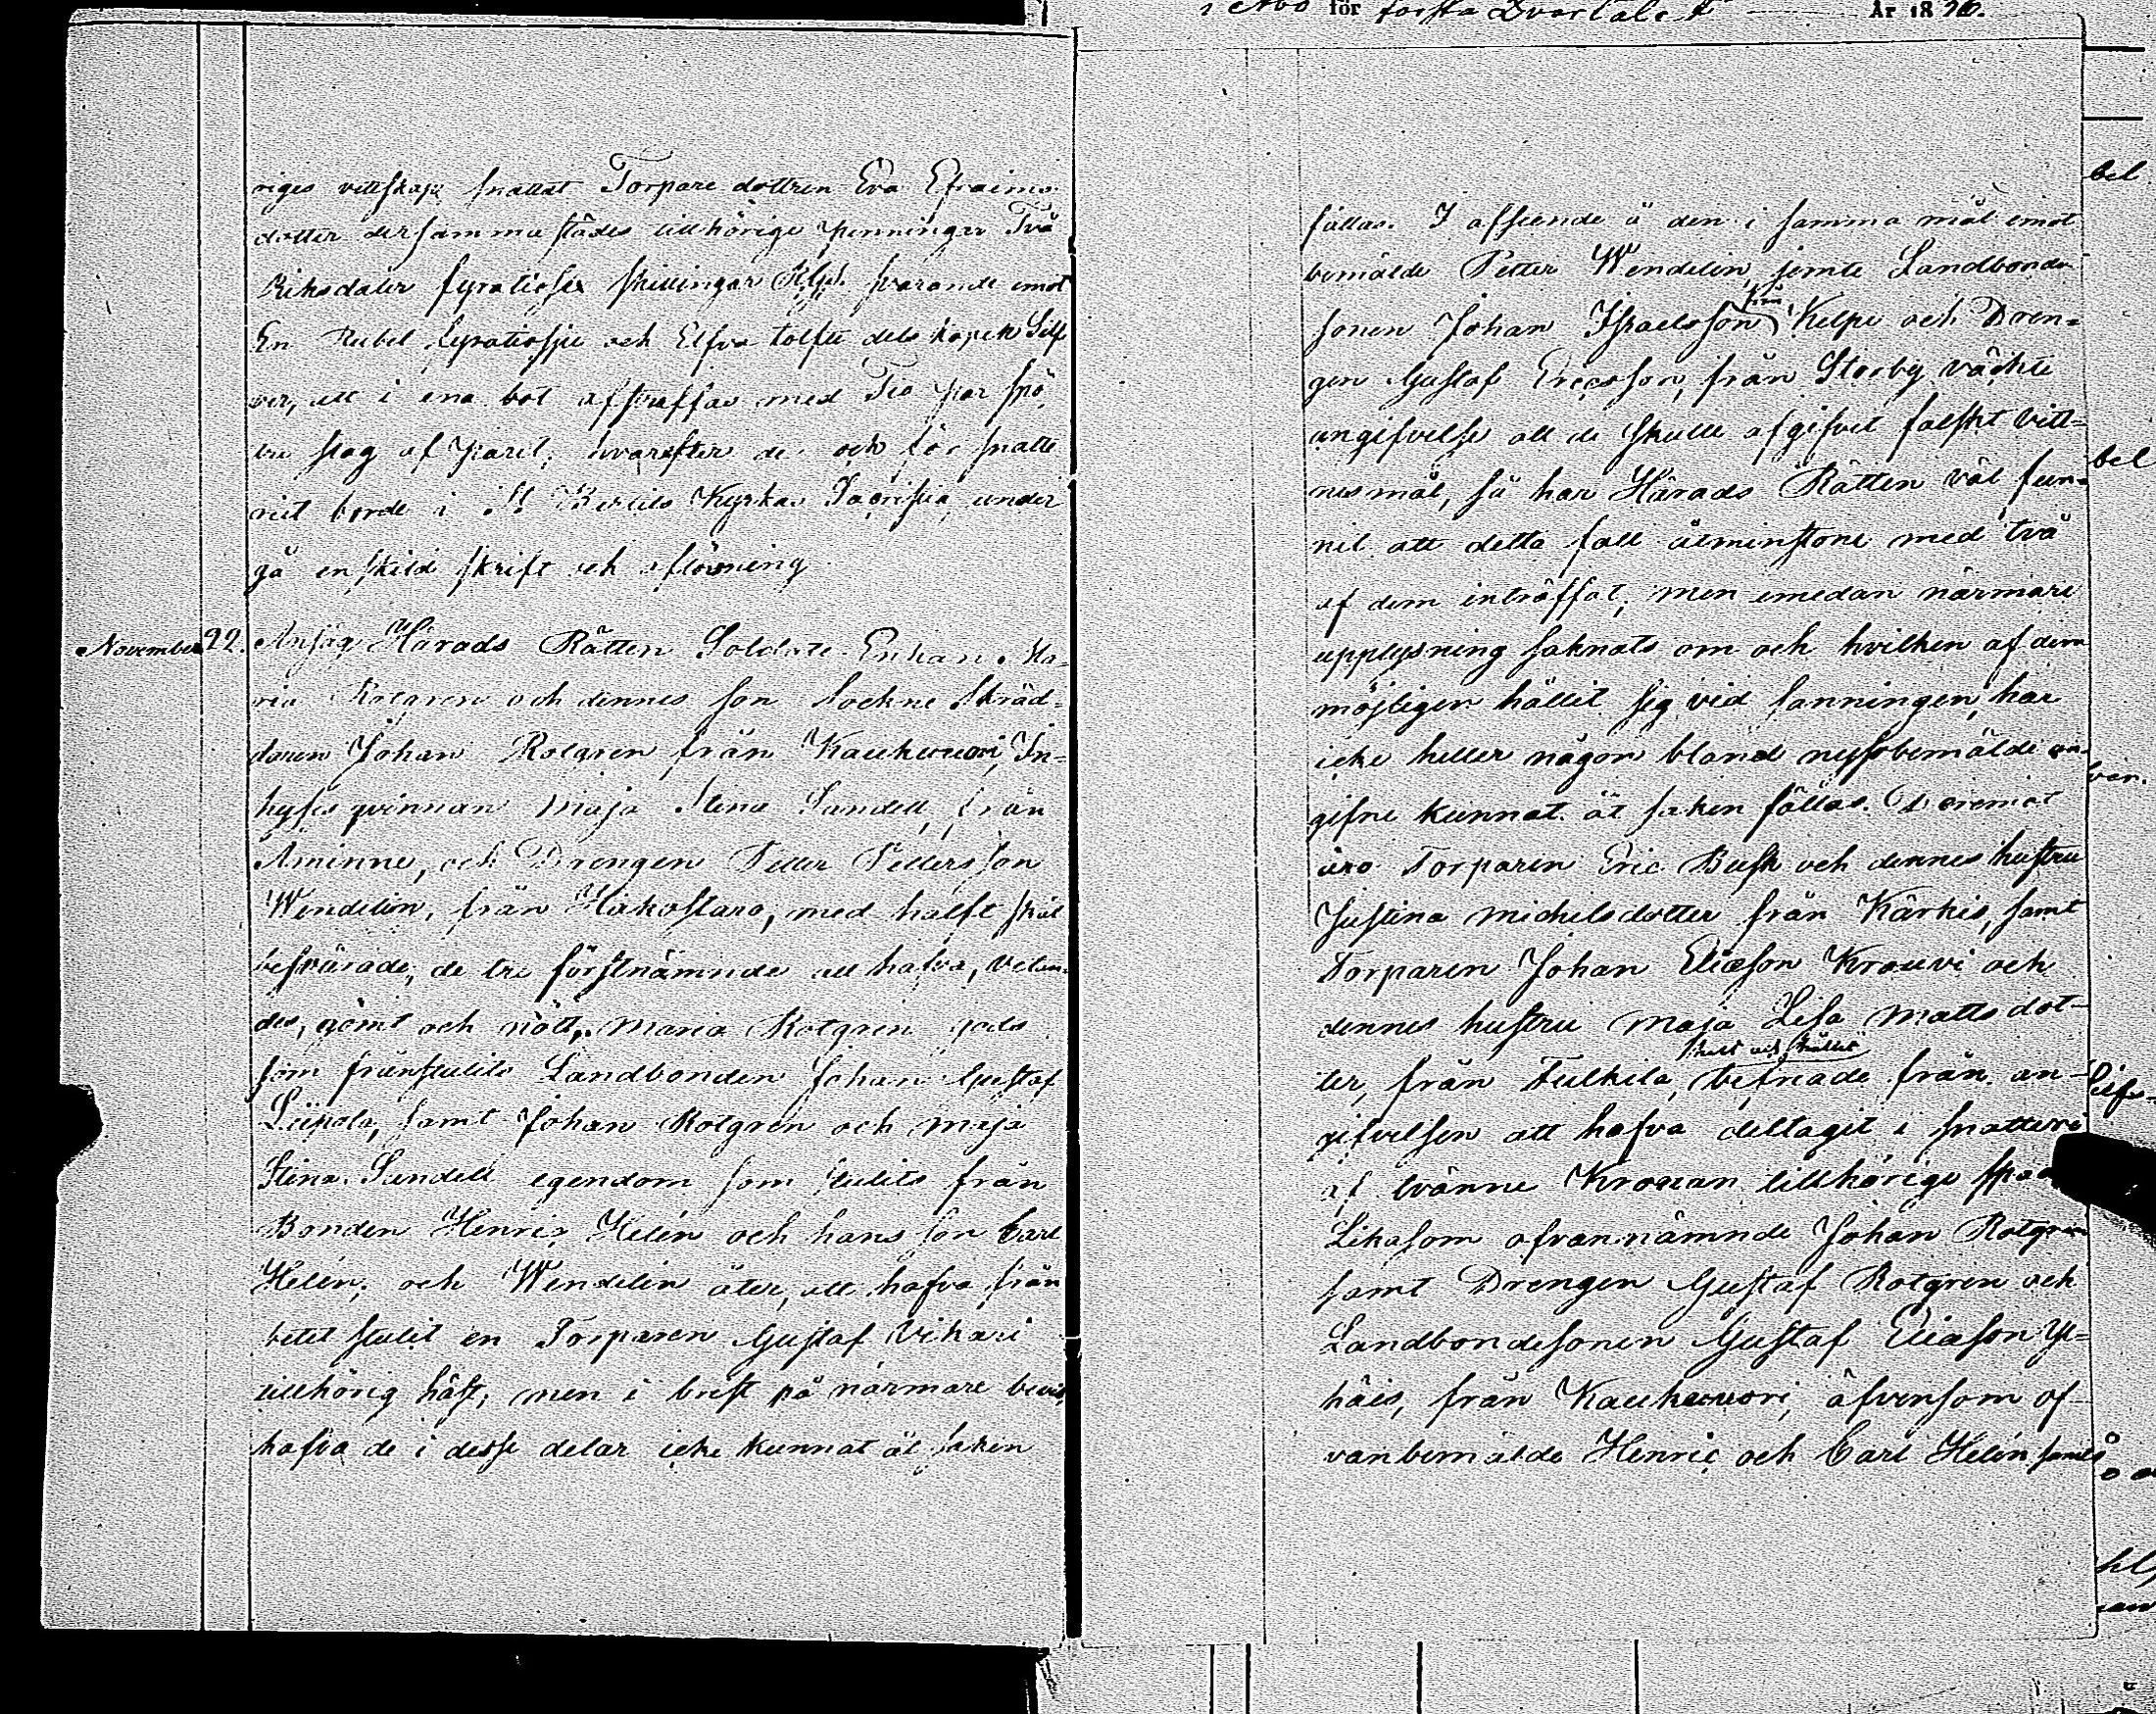 i Åbo för första Qvartalet År 1826.
riges vettskap snattat Torpare dottren Eva Efraims
dotter dersammastädes tillhörige penningar Två
Riksdaler fyratiosex skillingar RGs. svarande emot
En Rubel fyratiosju och Elfva tolfte dels kopek Silf
ver, att i ena bot afstraffas med Tio par spö,
tre slag af paret; hvarefter de och för snatte
riet borde i St Bertils Kyrkas Sacristia under
gå enskild skrift och aflösning
November 22. Ansåg Härads Rätten Soldate Enkan Ma-
ria Rotgren och dennes son Sockne Skräd-
daren Johan Rotgren från Kaukwuori, In-
hyses qvinnan Maja Stina Sundell, från
Åminne, och Drengen Petter Pettersson
Wendelin, från Hakostaro, med halft skäl
besvärade, de tre förstnämnde att hafva, vetan-
des, gömt och nött, Maria Rotgren gods
som frånstulits Landbonden Johan Gustaf
Liipola, samt Johan Rotgren och Maja
Stina Sundell egendom som stulits från
Bonden Henric Helén och hans son Carl
Helén; och Wendelin åter, att hafva från
betet stulit en Torparen Gustaf Vikari
tillhörig häst; men i brist på närmare bevis,
hafva de i desse delar icke kunnat åt saken
fällas. I afseende å den i samma mål emot
bemälde Petter Wendelin, jemte Landbonde
sonen Johan Israelsson från Kelpi och Dren-
gen Gustaf Ericsson, från Storby väckte
angifvelse att de skulle afgifvit falskt vitt-
nesmål, så har Härads Rätten väl fun-
nit att detta fall åtminstone med två
af dem inträffat; men emedan närmare
upplysning saknats om och hvilken af dem
möjligen hållit sig vid sanningen, har
icke heller någon bland nyssbemälde an-
gifne kunnat åt saken fällas. Deremot
äro Torparen Eric Busk och dennes hustru
Justina Michelsdotter från Kärkis, samt
Torparen Johan Eliæson Krouvi och
dennes hustru Maja Lisa Mattsdot-
ter, från Tulkila, helt och hållit befriade från an-
gifvelsen att hafva deltagit i snatteri
af tvänne Kronan tillhörige
Likasom ofvannämnde Johan Rotgren
samt Drengen Gustaf Rotgren och
Landbondesonen Gustaf Eliæson Yl-
häis, från Kaukwuori, äfvensom of-
vanbemälde Henric och Carl Helén samt
bel
bel
ver.